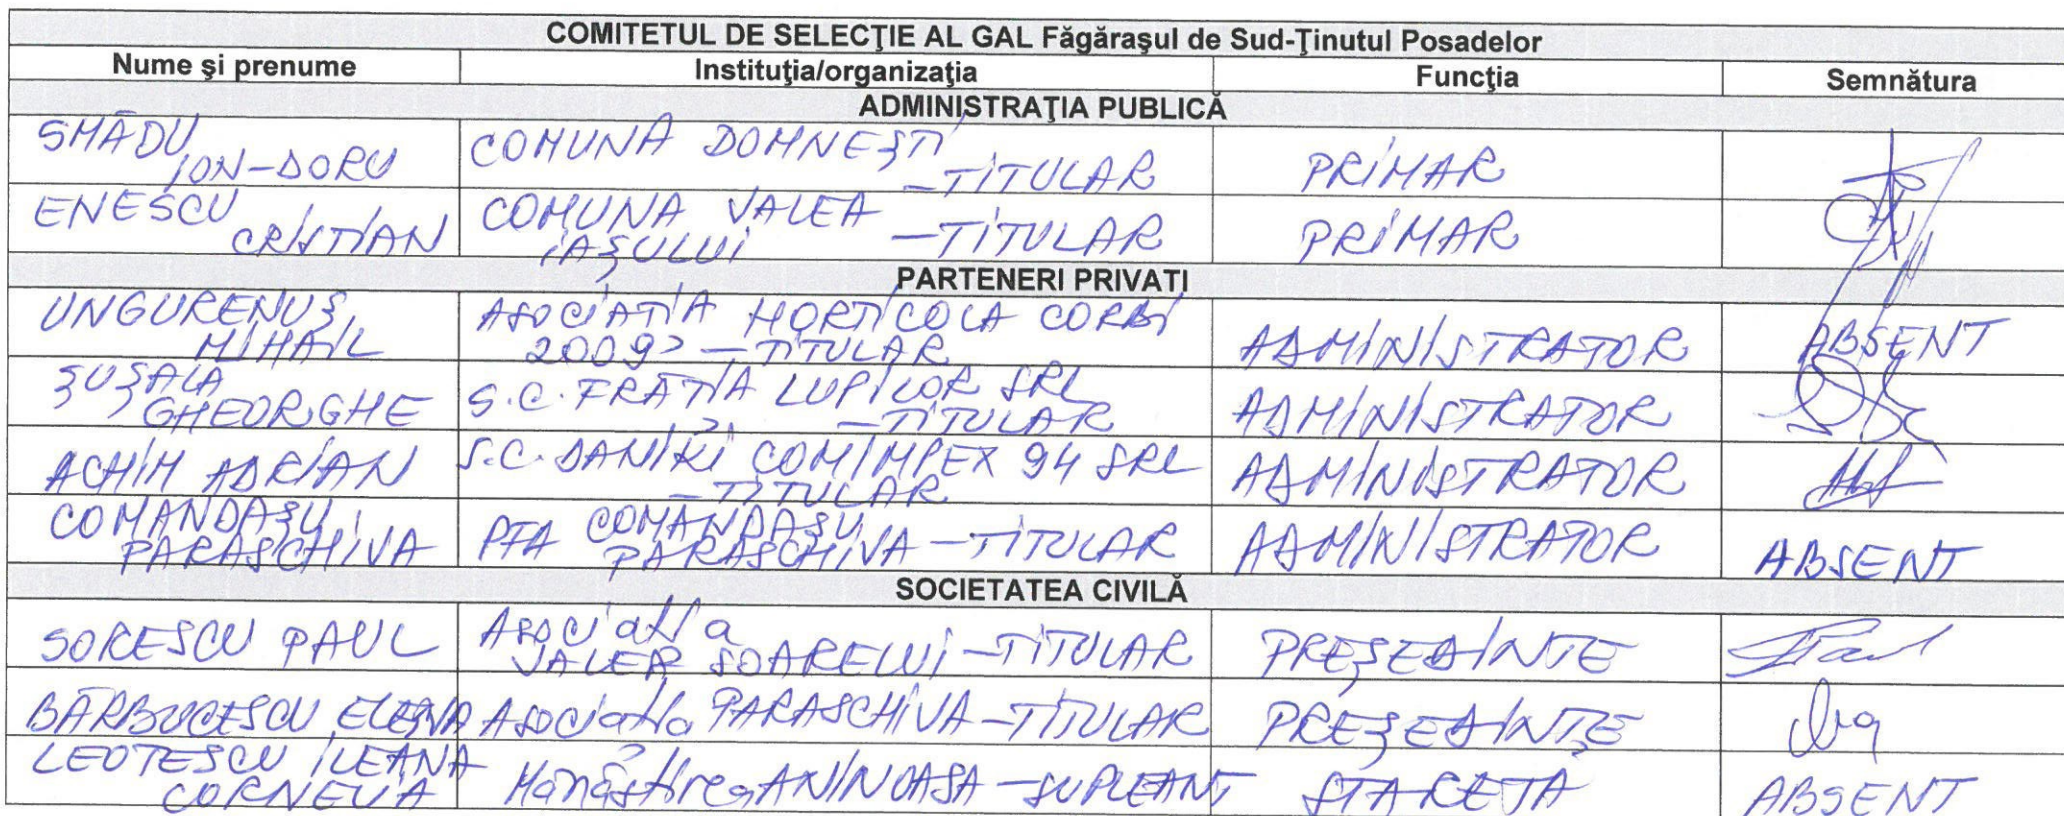 COMITETUL DE SELECŢIE AL GAL Făgăraşul de Sud-Ţinutul Posadelor
Nume şi prenume Instituţia/organizaţia Funcţia Semnătura
ADMINISTRAŢIA PUBLICĂ
SMĂDU ION-DORU COMUNA DOMNEŞTI -TITULAR PRIMAR
ENESCU CRISTIAN COMUNA VALEA IAŞULUI -TITULAR PRIMAR
PARTENERI PRIVATI
UNGURENUŞ MIHAIL ASOCIATIA HORTICOLA CORBI 2009 -TITULAR ADMINISTRATOR ABSENT
ŞUŞALA GHEORGHE S.C. FRĂŢIA LUPILOR SRL -TITULAR ADMINISTRATOR
ACHIM ADRIAN S.C. DANIKI COMIMPEX 94 SRL -TITULAR ADMINISTRATOR
COMANDAŞU PARASCHIVA PFA COMANDAŞU PARASCHIVA -TITULAR ADMINISTRATOR ABSENT
SOCIETATEA CIVILĂ
SORESCU PAUL Asociatia VALEA SOARELUI -TITULAR PREŞEDINTE
BĂRBUCESCU ELENA Asociatia PARASCHIVA -TITULAR PREŞEDINTE
LEOTESCU ILEANA CORNELIA Mănăstirea ANINOASA -SUPLEANT STAREŢĂ ABSENT